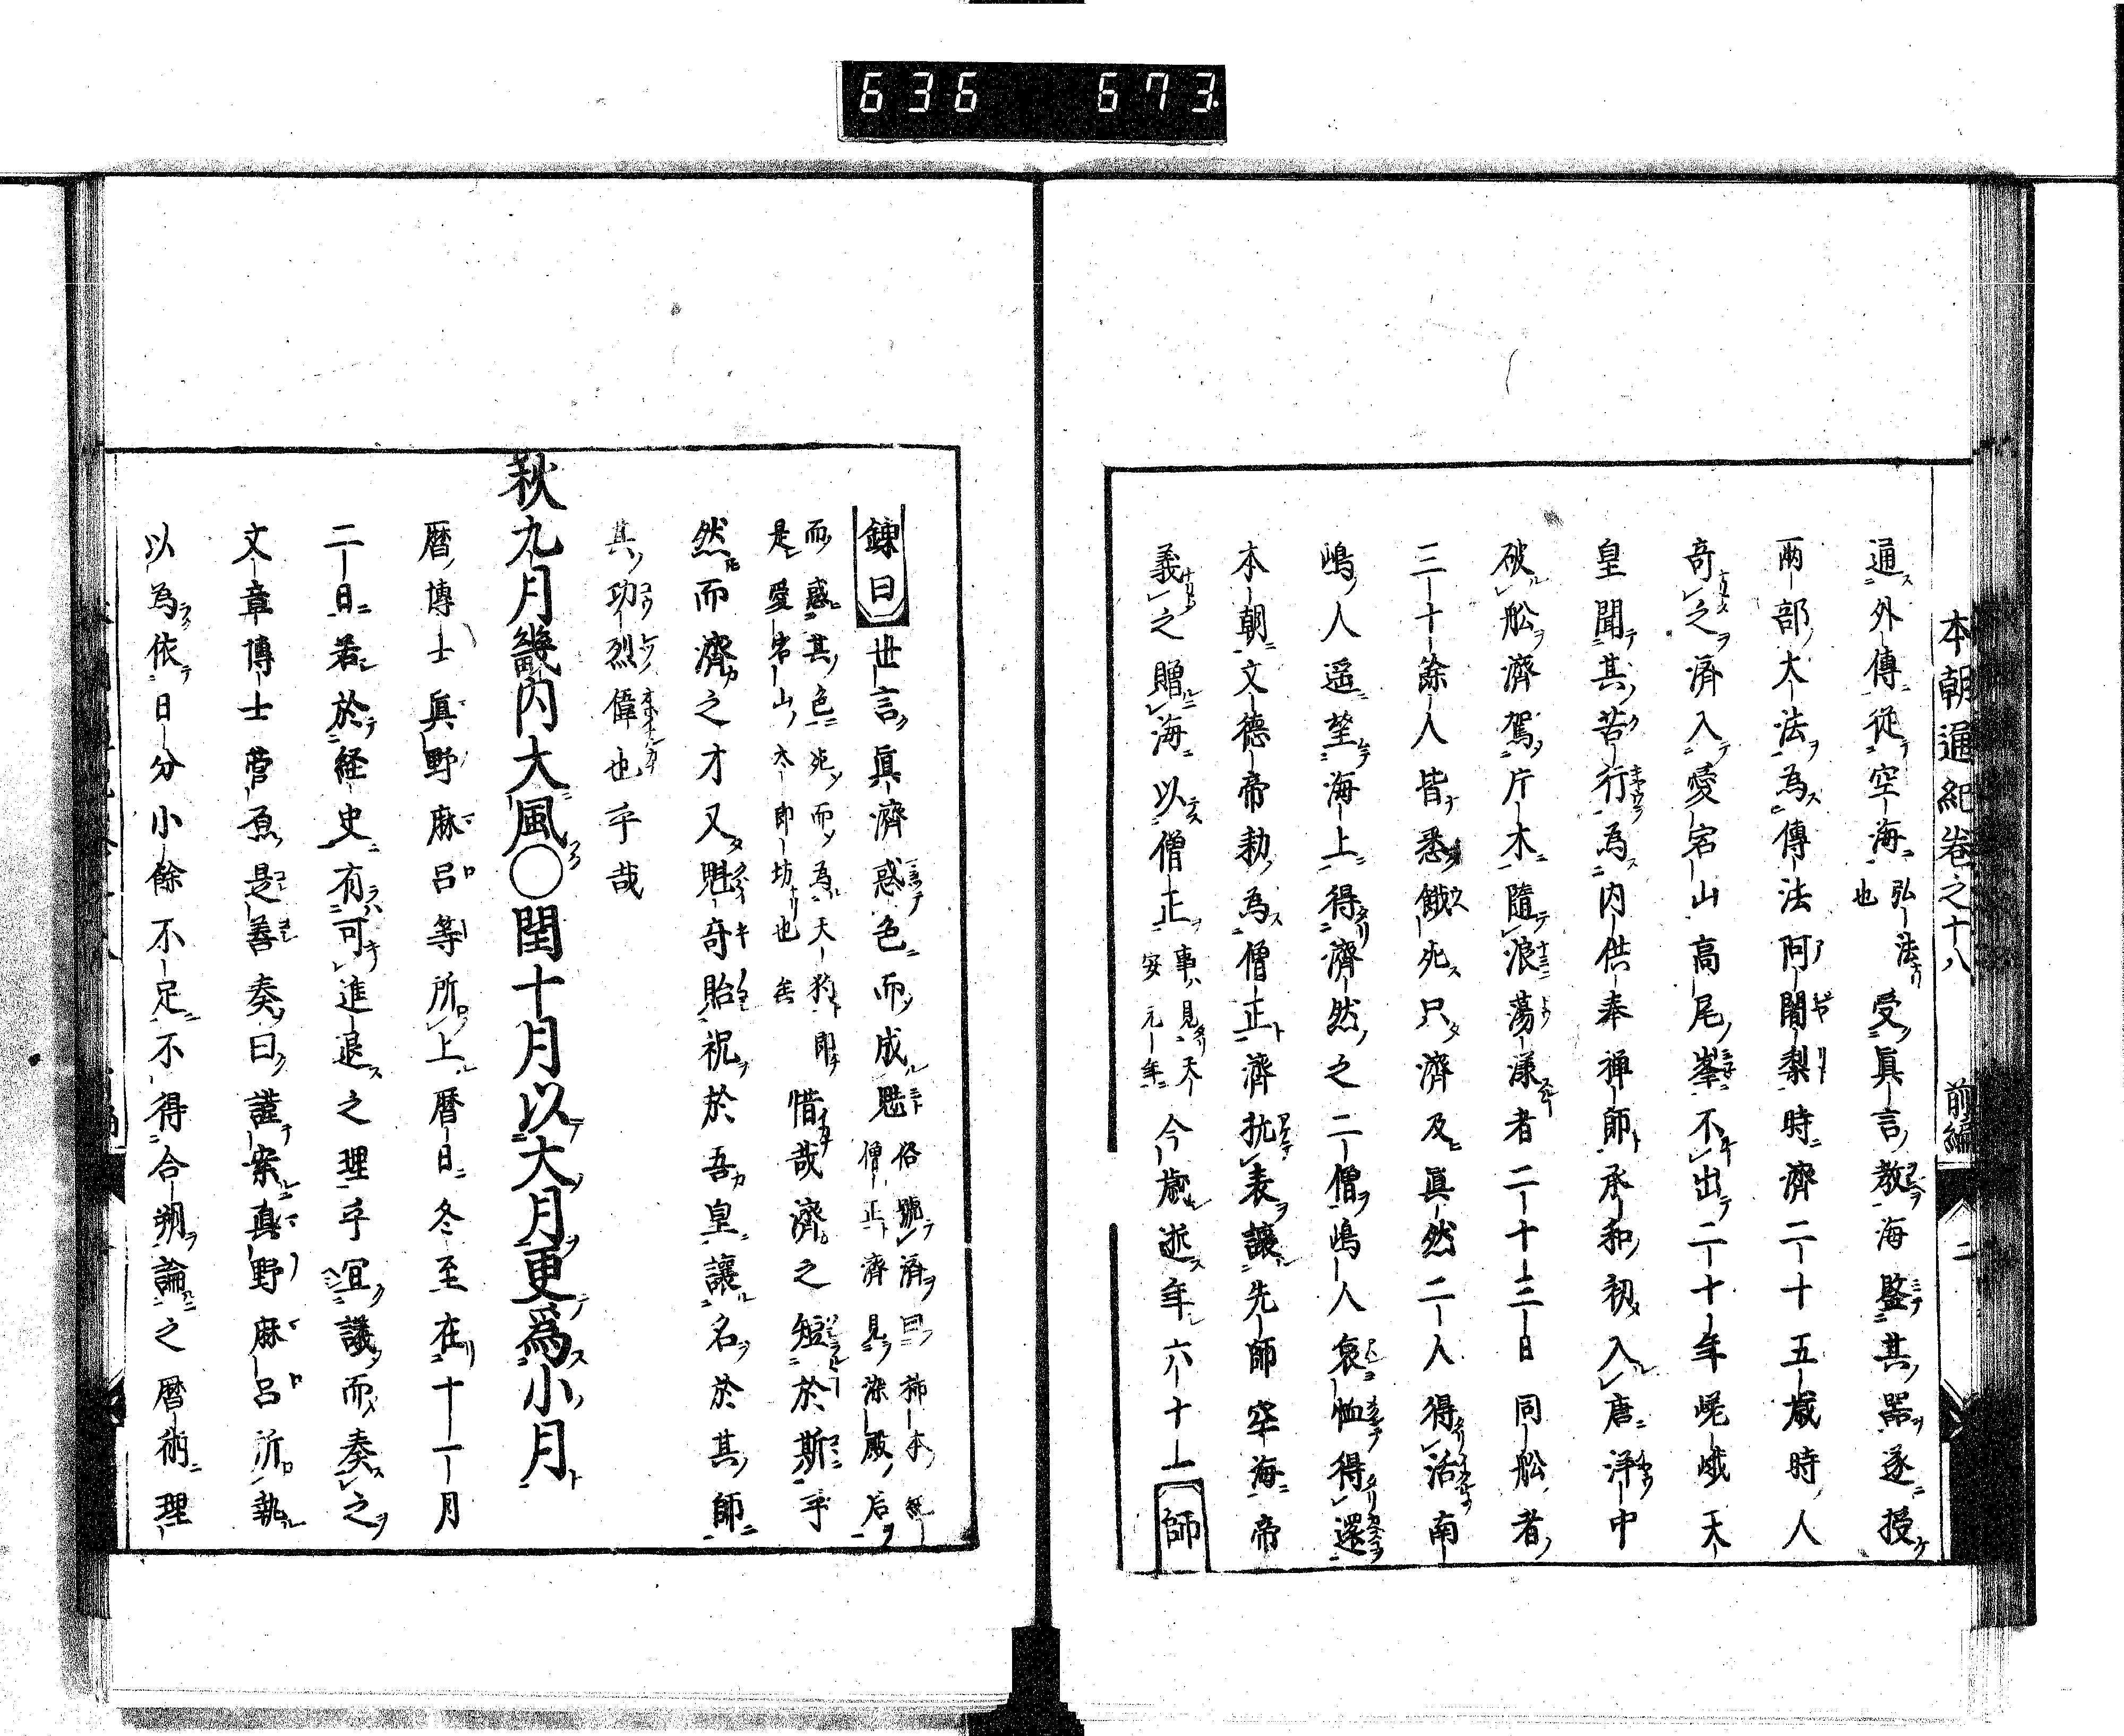 636 673
本朝通紀卷之十八 前編 二
通外傳從空海弘法也受眞言教海鑒其器遂授
兩部大法為傳法阿闍梨時濟二十五歳時人
奇之濟入愛宕山高尾峯不出二十年嵯峨天
皇聞其苦行為内供奉禅師承和初入唐洋中
破舩濟駕片木隨浪蕩漾者二十三日同舩者
三十餘人皆悉餓死只濟及眞然二人得活南
嶋人遥望海上得濟然之二僧嶋人哀恤得還
本朝文徳帝勅為僧正濟抗表讓先師空海帝
義之贈海以僧正事見天安元年今歳逝年六十一師
錬曰世言眞濟惑色而成魃俗號濟曰柿本紀僧正濟見染殿后
而惑其色死而為天狗即是愛宕山太郎坊也惜哉濟之短於斯乎
然而濟之才又魁奇貽祝於吾皇讓名於其師
其功烈偉也乎哉
秋九月畿内大風〇閏十月以大月更爲小月
暦博士眞野麻呂等所上暦日冬至在十一月
二日若於経史有可進退之理乎冝議而奏之
文章博士菅原是善奏曰謹案眞野麻呂所執
以為依日分小餘不足不得合朔論之暦術理